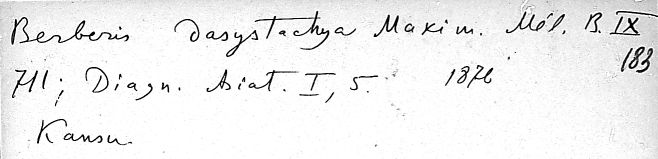 Berberis dasystachya Maxim. Mél. B. IX
183
711; Diagn. Asiat. I, 5. 1876
Kansu.